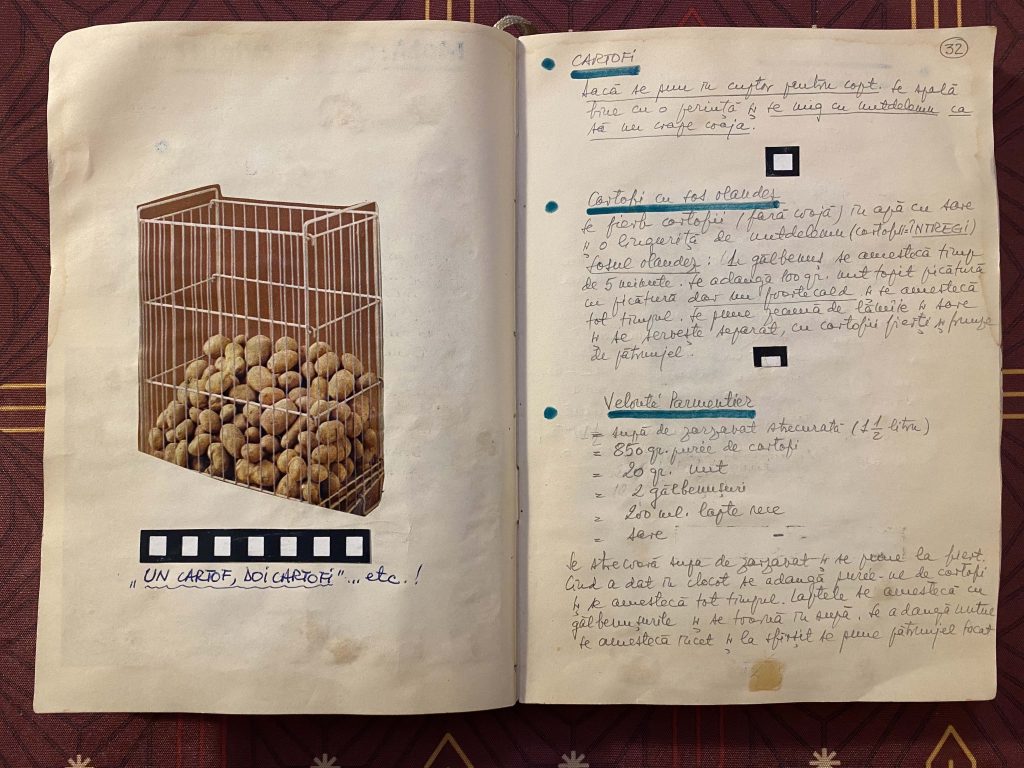 „UN CARTOF, DOI CARTOFI"... etc.!
32
CARTOFI
Dacă se pun în cuptor pentru copt. Se spală
bine cu o periuță și se ung cu untdelemn ca
să nu crape coaja.
Cartofi cu sos olandez
Se fierb cartofii (fără coajă) în apă cu sare
și o linguriță de untdelemn (cartofii=ÎNTREGI)
Sosul olandez: 1 gălbenuș se amestecă timp
de 5 minute. Se adangă 100 gr. unt topit picătură
cu picătură dar nu foarte cald și se amestecă
tot timpul. Se pune zeamă de lămîie și sare
și se servește separat, cu cartofii fierți și frunze
de pătrunjel.
Velouté Parmentier
= supă de zarzavat strecurată (1 1/2 litru)
= 850 gr. purée de cartofi
= 20 gr. unt
= 2 gălbenușuri
= 200 ml. lapte rece
= sare
Se strecoară supă de zarzavat și se pune la fiert.
Cînd a dat în clocot se adangă purée-ul de cartofi
și se amestecă tot timpul. Laptele se amestecă cu
gălbenușurile și se toarnă în supă. Se adangă untul
se amestecă încet și la sfîrșit se pune pătrunjel tocat